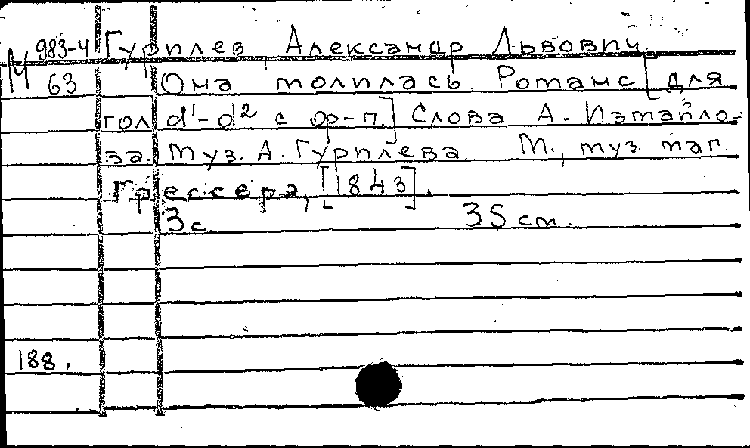 М 983-4 Гурилев, Александр Львович.
63 Она молилась Романс [для
гол d¹-d² с ф-п.] Слова А. Измайло-
ва. Муз. А. Гурилева М., муз маг.
Грессера, [1843].
3 с. 35 см.
188.